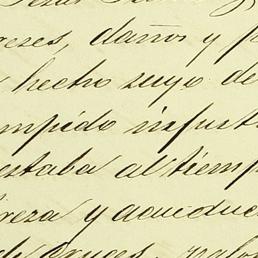 reses, daños y p
hecho suyo de
mpido injust
estaba al tiemp
reza y acueduc